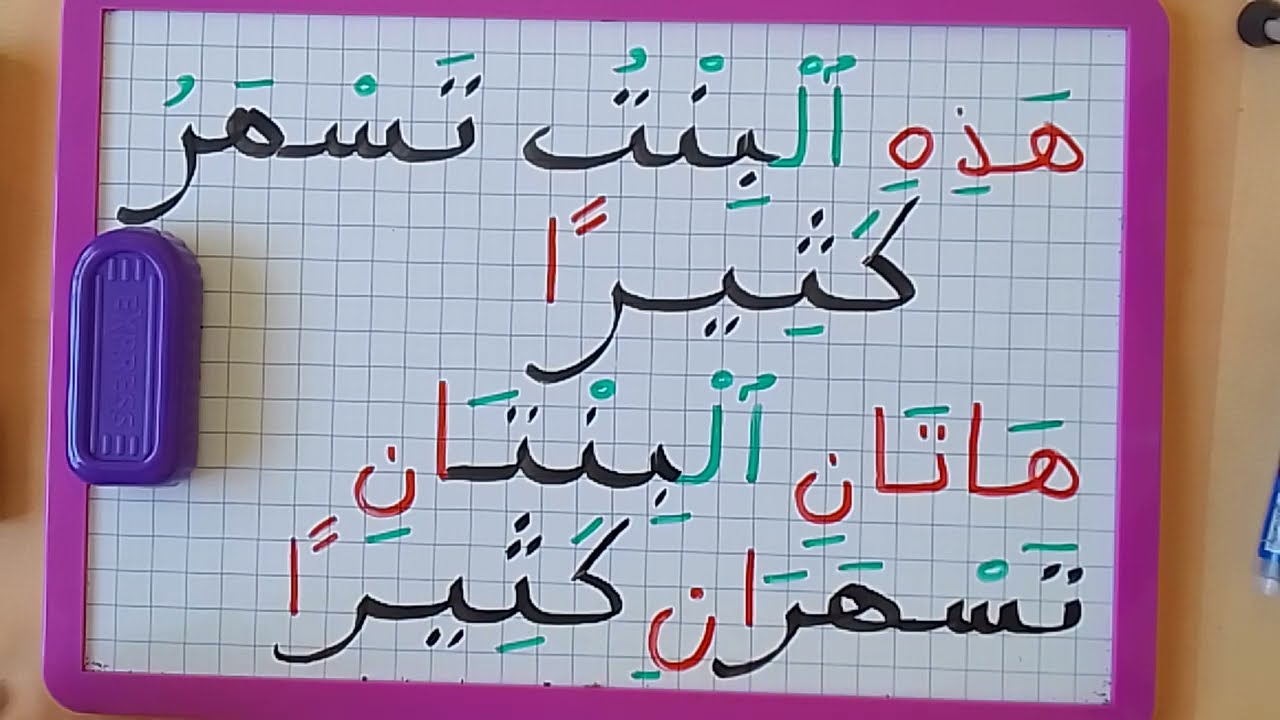 هَذِهِ ٱلْبِنْتُ تَسْهَرُ
كَثِيرًا
هَاتَانِ ٱلْبِنْتَانِ
تَسْهَرَانِ كَثِيرًا
EXPRESS